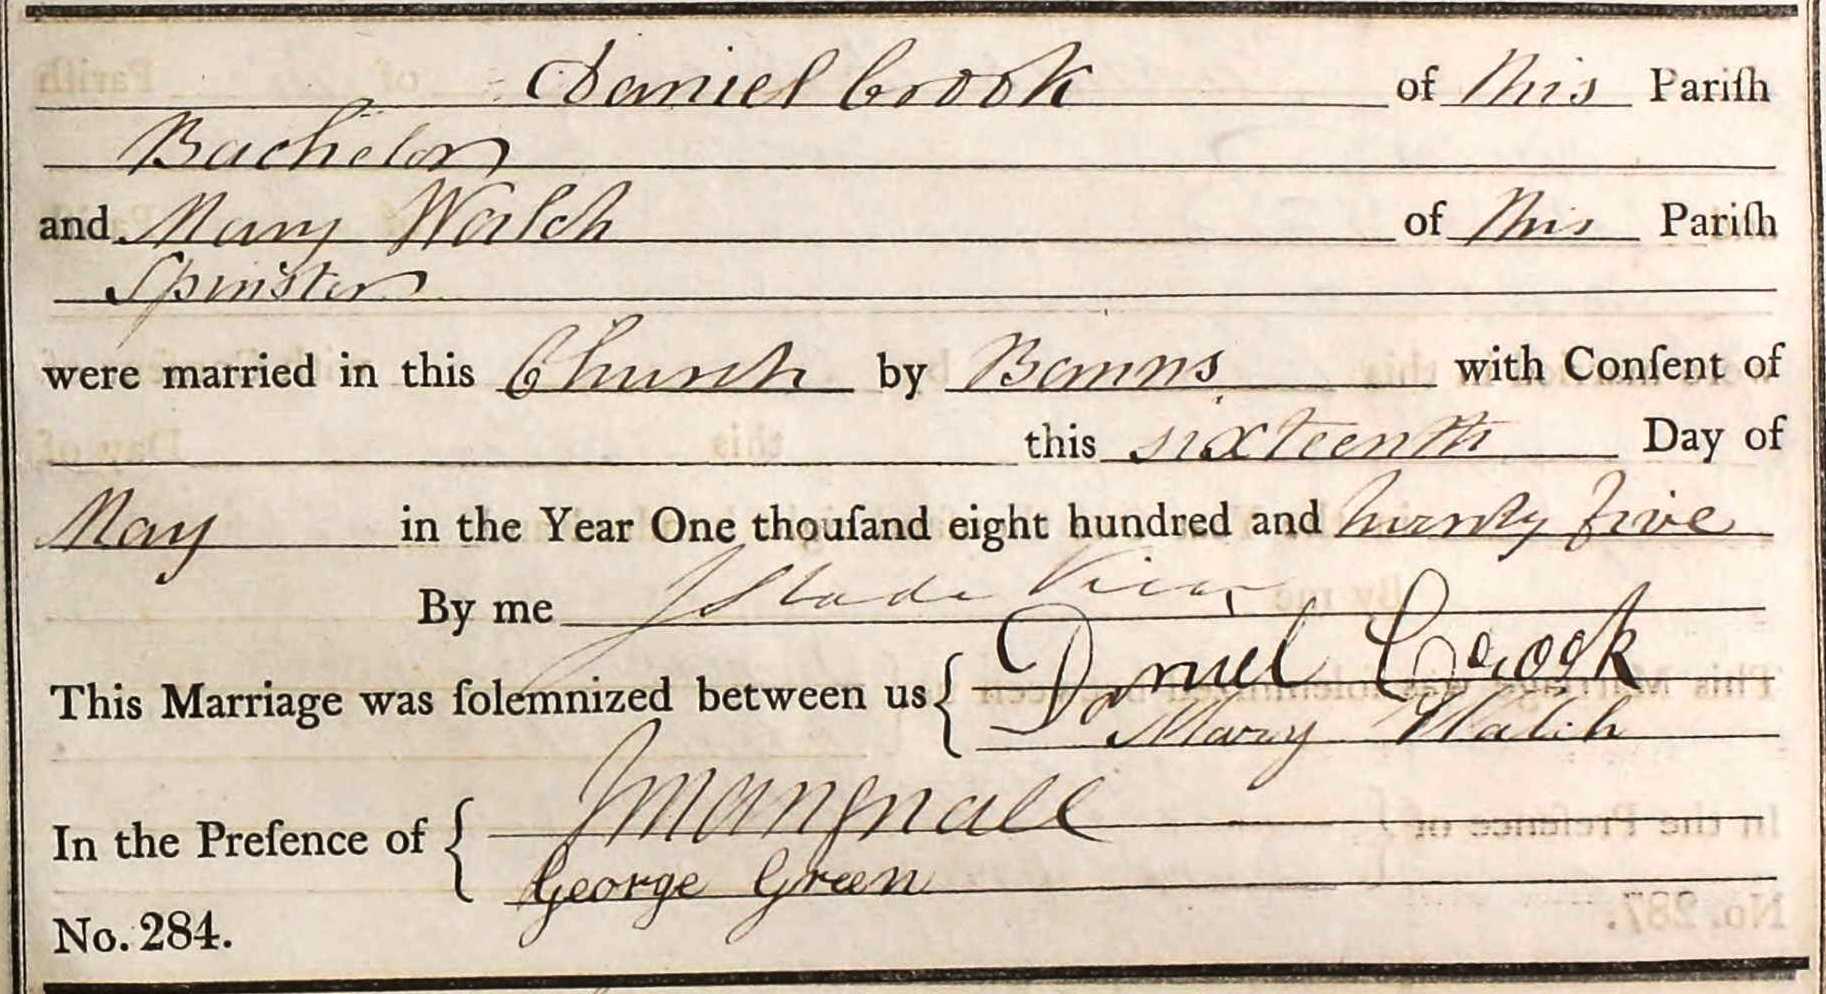 Daniel Crook of this Pariſh
Bachelor
and Mary Walch of this Pariſh
Spinster
were married in this Church by Banns with Conſent of
this sixteenth Day of
May in the Year One thouſand eight hundred and twenty five
By me J Slade Vicar
This Marriage was ſolemnized between us { Daniel Crook
Mary Walch
In the Preſence of { J Mangnall
George Green
No. 284.